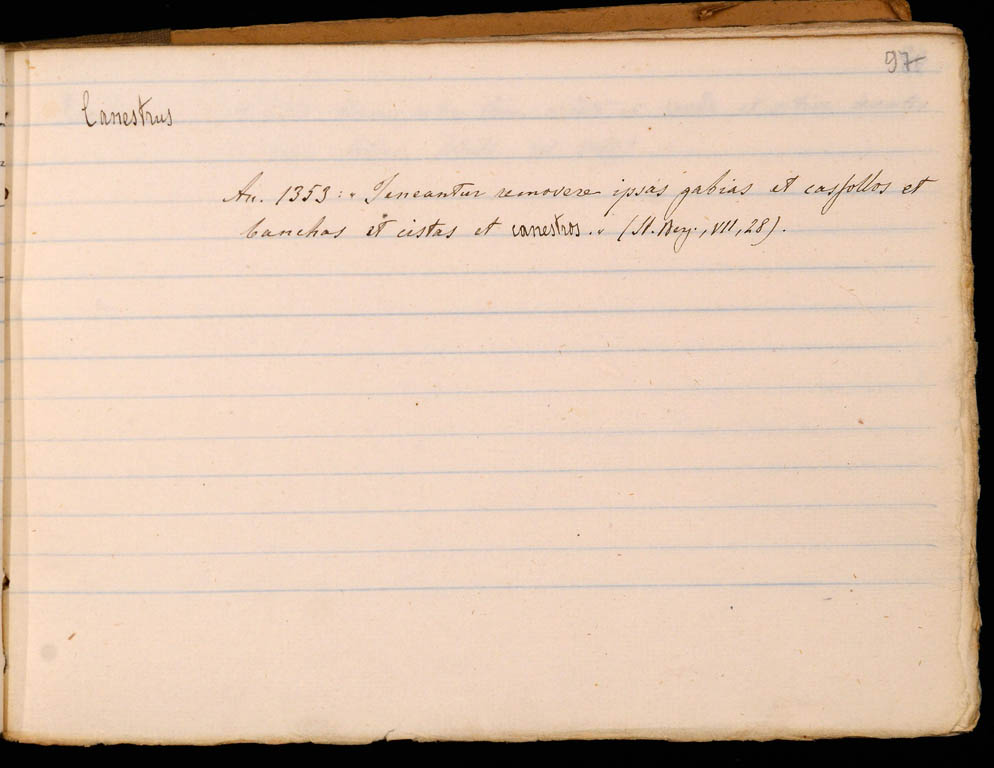 97
Canestrus
An. 1353: « Teneantur removere ipsas gabias et cassollos et
banchas et cistas et canestros. » (St. Berg., VII, 28).